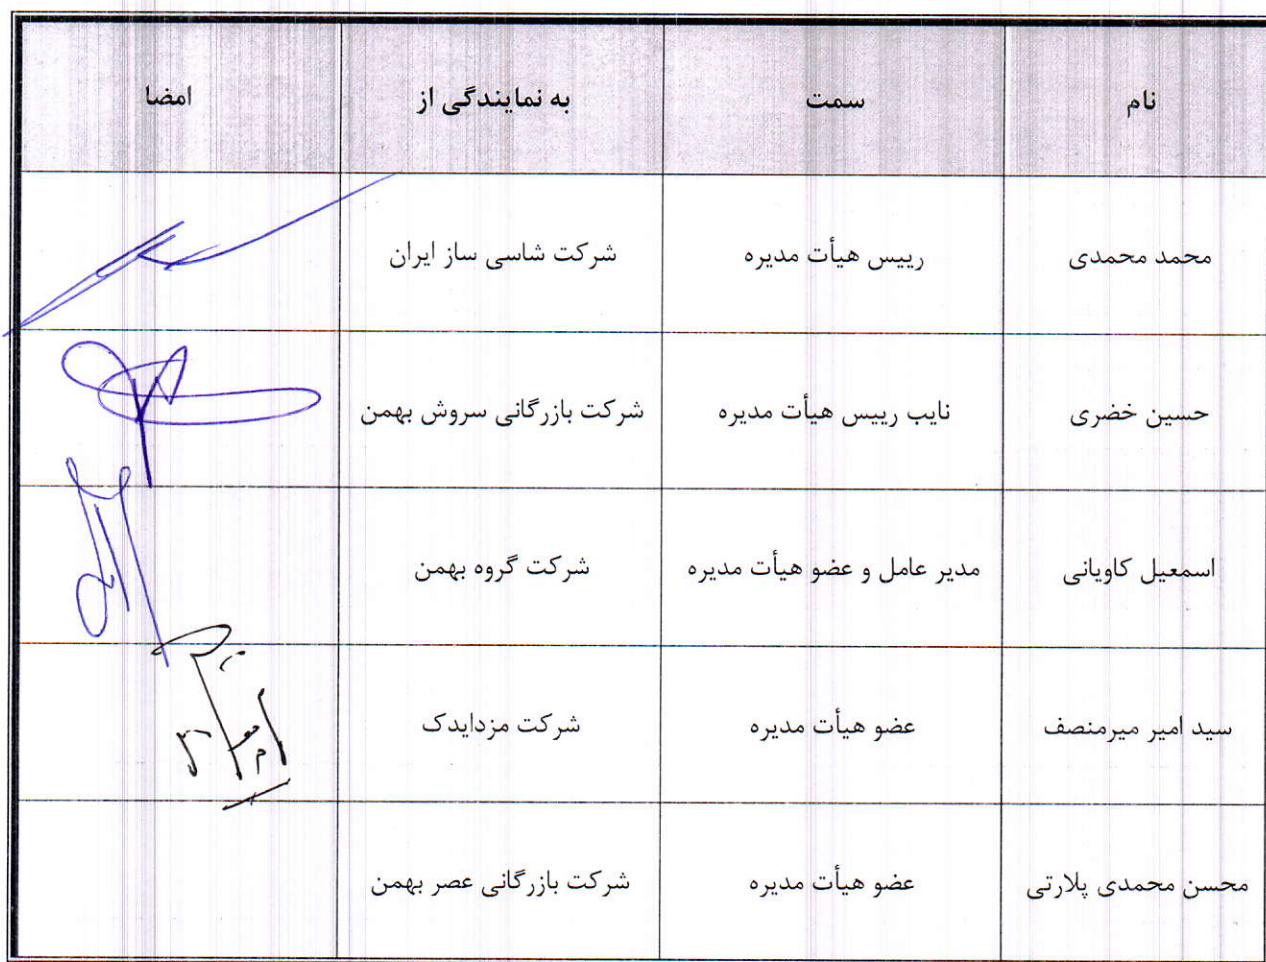 نام سمت به نمایندگی از امضا
محمد محمدی رییس هیأت مدیره شرکت شاسی ساز ایران
حسین خضری نایب رییس هیأت مدیره شرکت بازرگانی سروش بهمن
اسمعیل کاویانی مدیر عامل و عضو هیأت مدیره شرکت گروه بهمن
سید امیر میرمنصف عضو هیأت مدیره شرکت مزدایدک
محسن محمدی پلارتی عضو هیأت مدیره شرکت بازرگانی عصر بهمن